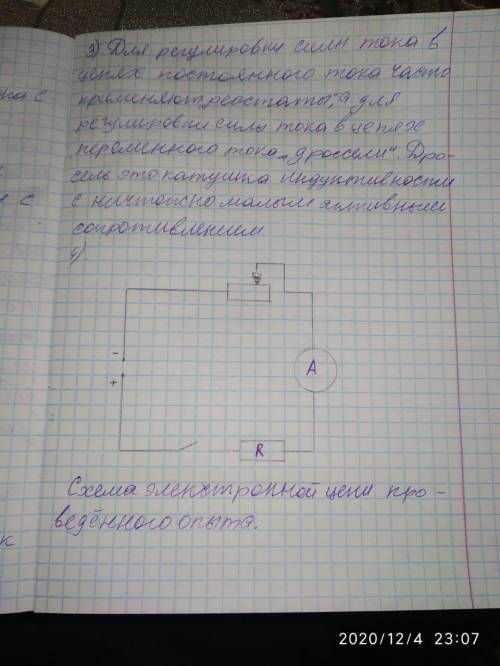 3). Для регулировки силы тока в
цепях постоянного тока часто
применяют „реостаты", а для
регулировки силы тока в цепях
переменного тока „дроссели". Дро-
сель это катушка индуктивности
с ничтожно малым активным
сопротивлением.
4).
- 
+
A
R
Схема электронной цепи про-
ведённого опыта.
ка с
с
к
2020/12/4 23:07